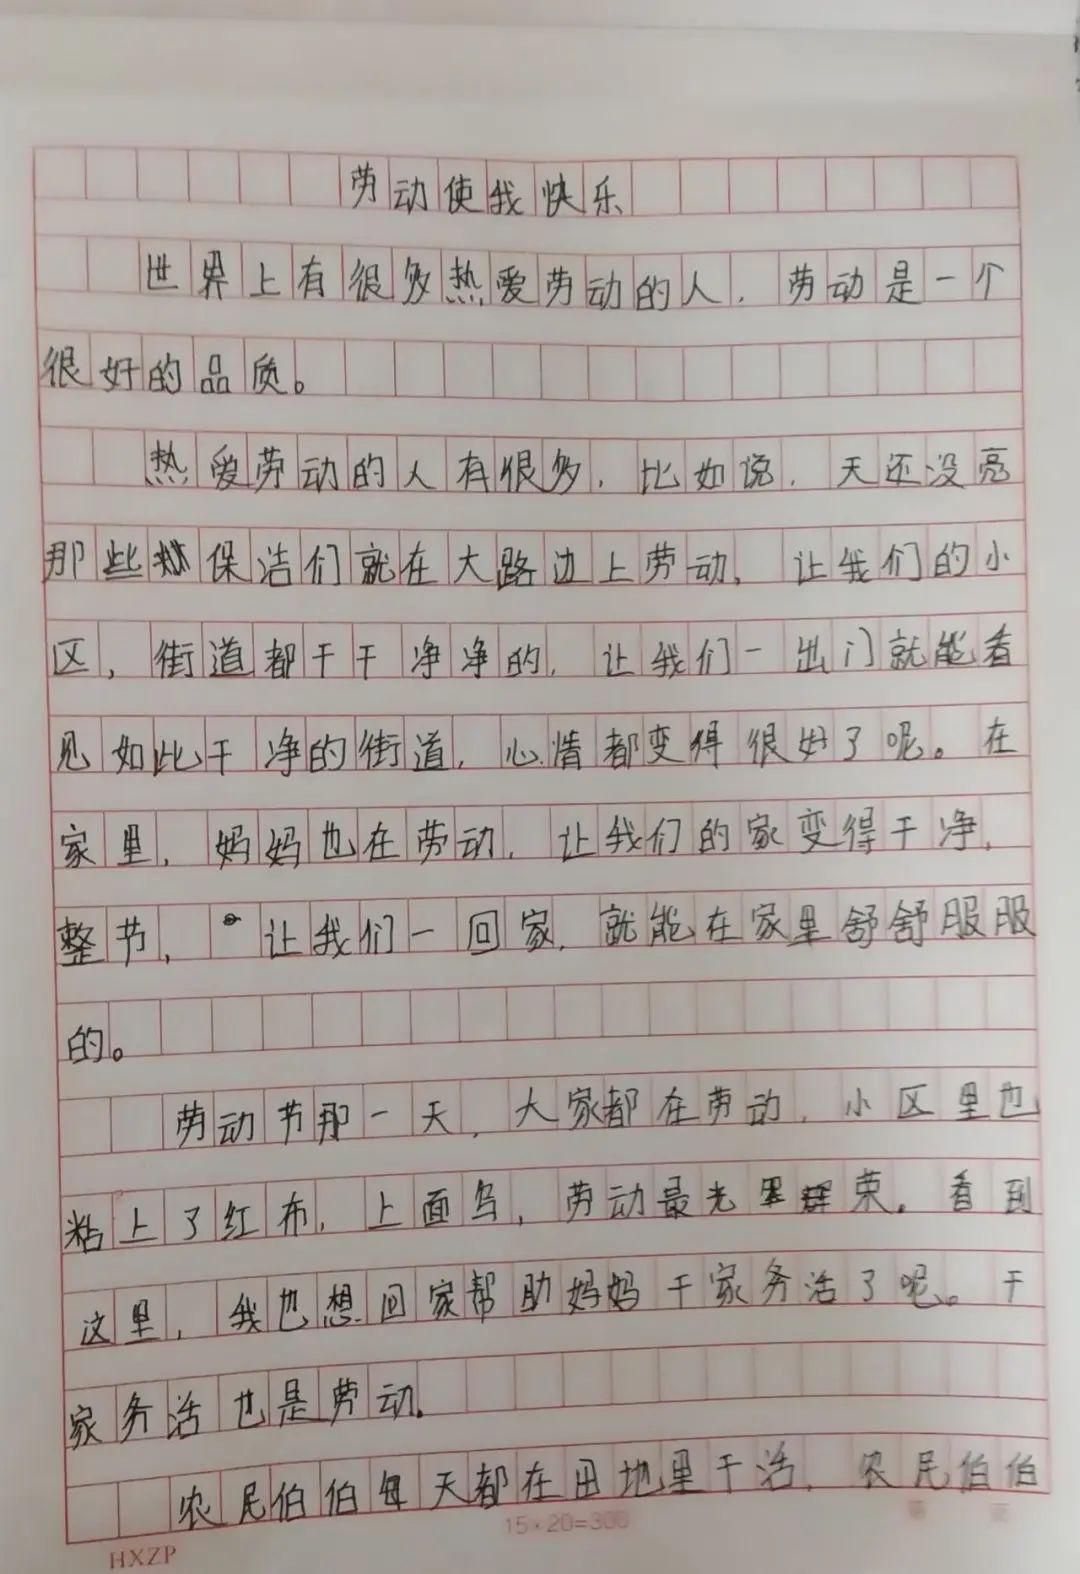 劳动使我快乐
世界上有很多热爱劳动的人，劳动是一个
很好的品质。
热爱劳动的人有很多，比如说，天还没亮
那些保洁们就在大路边上劳动，让我们的小
区，街道都干干净净的，让我们一出门就能看
见如此干净的街道，心情都变得很好了呢。在
家里，妈妈也在劳动，让我们的家变得干净，
整节，让我们一回家，就能在家里舒舒服服
的。
劳动节那一天，大家都在劳动，小区里也
粘上了红布，上面写，劳动最光荣。看到
这里，我也想回家帮助妈妈干家务活了呢。干
家务活也是劳动。
农民伯伯每天都在田地里干活，农民伯伯
15×20=300
HXZP